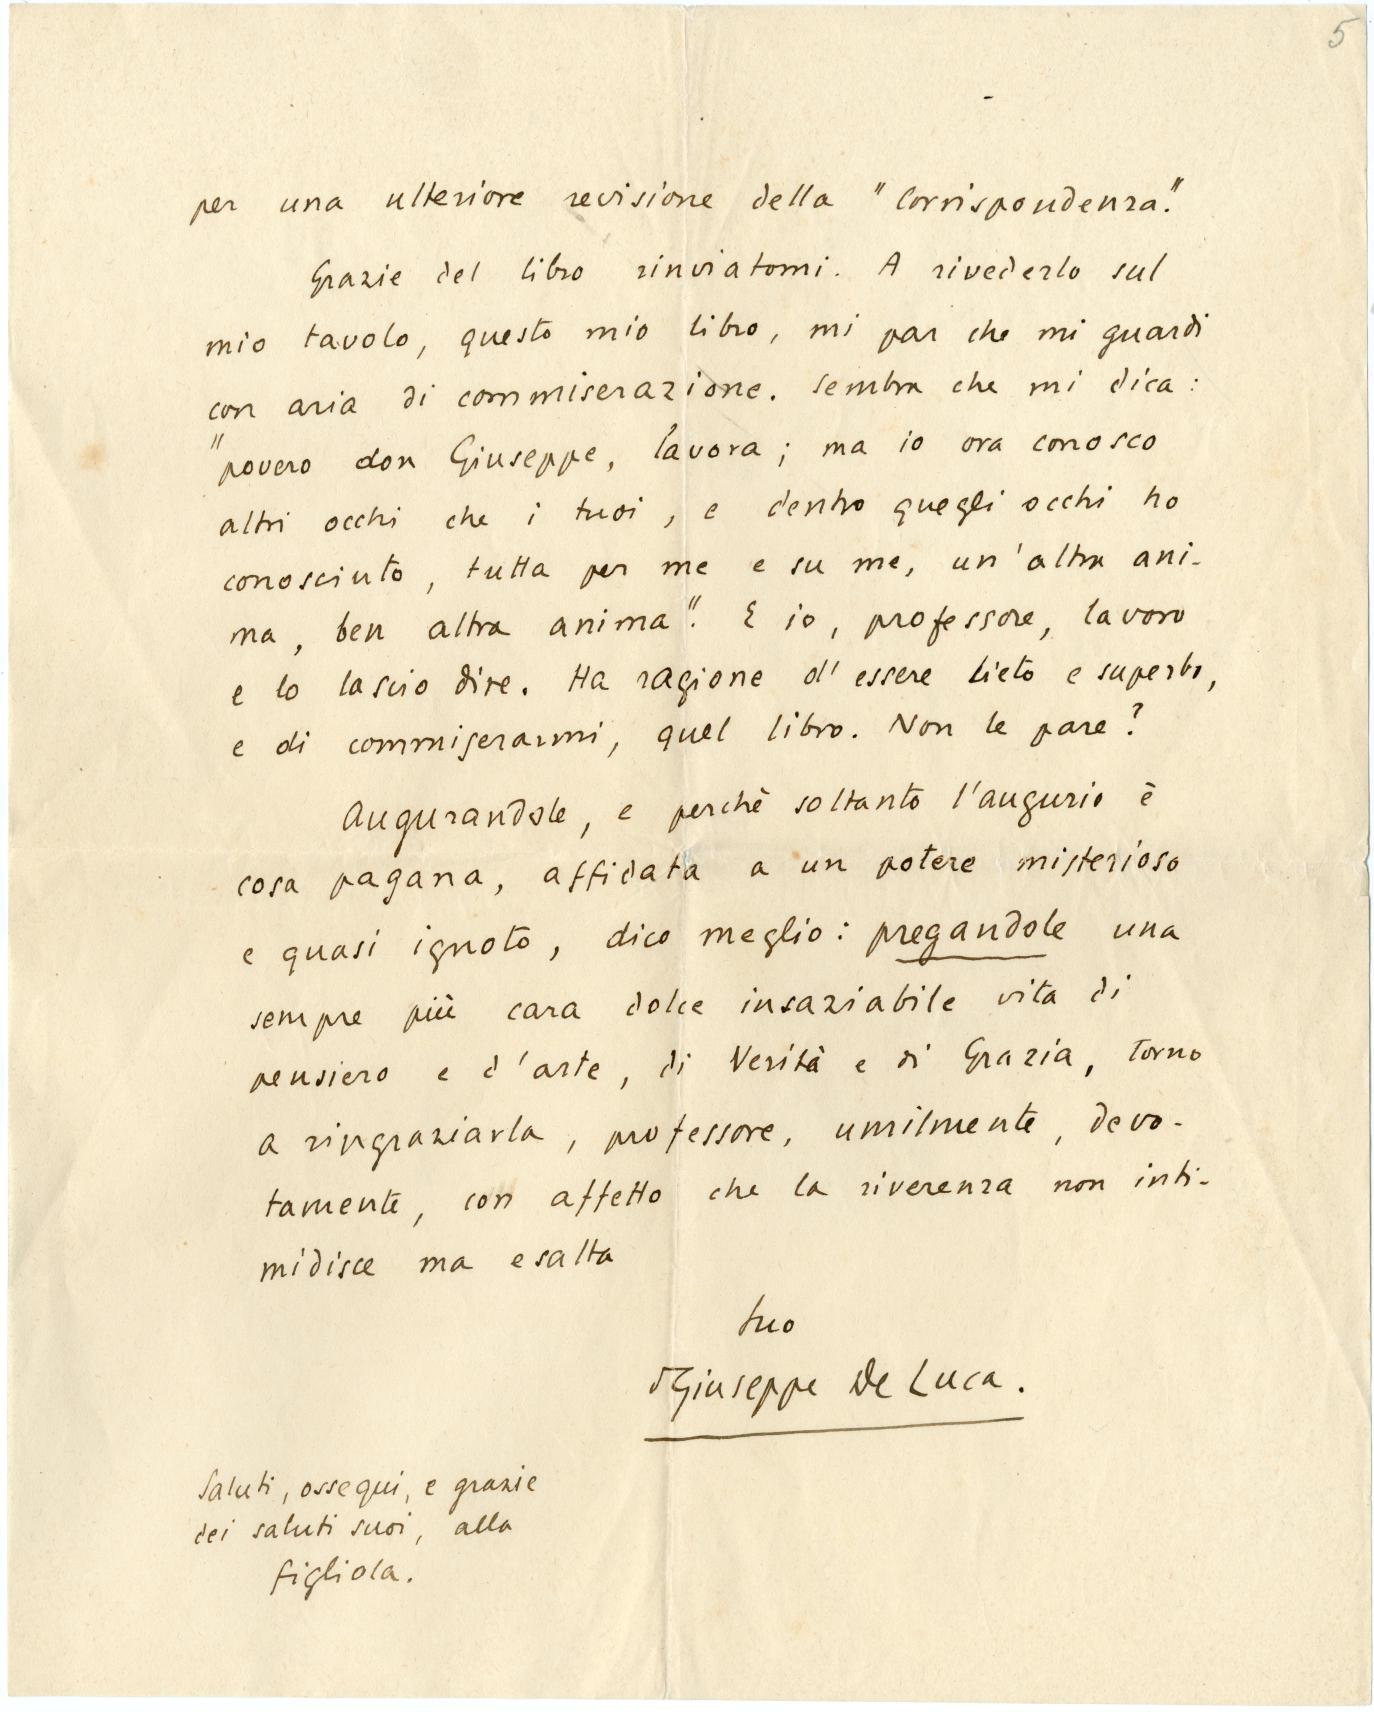 5
per una ulteriore revisione della "Corrispondenza".
Grazie del libro rinviatomi. A rivederlo sul
mio tavolo, questo mio libro, mi par che mi guardi
con aria di commiserazione. Sembra che mi dica:
"povero don Giuseppe, lavora; ma io ora conosco
altri occhi che i tuoi, e dentro quegli occhi ho
conosciuto, tutta per me e su me, un'altra ani-
ma, ben altra anima". E io, professore, lavoro
e lo lascio dire. Ha ragione d'essere lieto e superbo,
e di commiserarmi, quel libro. Non le pare?
Augurandole, e perchè soltanto l'augurio è
cosa pagana, affidata a un potere misterioso
e quasi ignoto, dico meglio: pregandole una
sempre più cara dolce insaziabile vita di
pensiero e d'arte, di Verità e di Grazia, torno
a ringraziarla, professore, umilmente, devo-
tamente, con affetto che la riverenza non inti-
midisce ma esalta
suo
dGiuseppe De Luca.
Saluti, ossequi, e grazie
dei saluti suoi, alla
figliola.